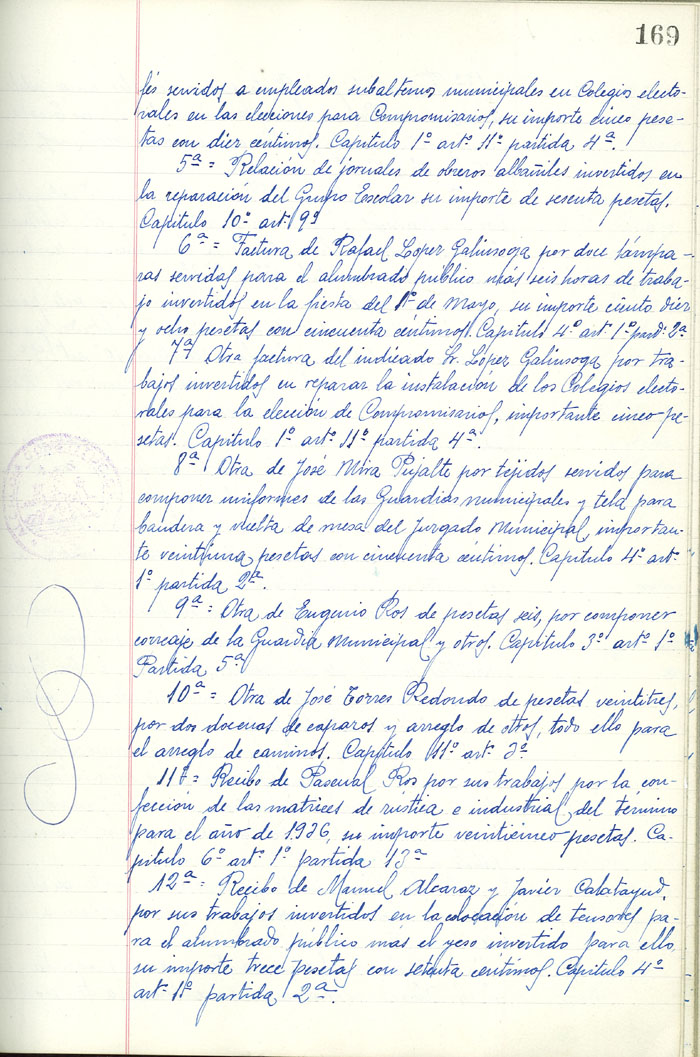 169
fés servidos a empleados subalternos municipales en Colegios electo-
rales en las elecciones para Compromisarios, su importe cinco pese-
tas con diez céntimos. Capitulo 1º artº 11º partida 4ª.
5ª = Relación de jornales de obreros albañiles invertidos en
la reparación del Grupo Escolar su importe de sesenta pesetas.
Capitulo 10º artº 9º
6ª = Factura de Rafael López Galiusoga por doce lámpa-
ras servidas para el alumbrado público más seis horas de traba-
jo invertidos en la fiesta del 1º de Mayo, su importe ciento diez
y ocho pesetas con cincuenta centimos. Capitulo 4º artº 1º partdª 2ª
7ª Otra factura del indicado Sr. López Galiusoga por tra-
bajos invertidos en reparar la instalación de los Colegios electo-
rales para la elección de Compromisarios, importante cinco pe-
setas. Capitulo 1º artº 11º partida 4ª.
8ª Otra de José Mira Pujalte por tejidos servidos para
componer uniformes de las Guardias municipales y tela para
bandera y vuelta de mesa del Juzgado Municipal, importan-
te veintiuna pesetas con cincuenta céntimos. Capitulo 4º artº
1º partida 2ª.
9ª = Otra de Eugenio Ros de pesetas seis, por componer
correaje de la Guardia Municipal y otros. Capitulo 3º artº 1º
Partida 5ª
10ª = Otra de José Torres Redondo de pesetas veintitres,
por dos docenas de caparos y arreglo de otros, todo ello para
el arreglo de caminos. Capitulo 11º artº 3º
11ª = Recibo de Pascual Ros por sus trabajos por la con-
fección de las matrices de rustica e industrial del término
para el año de 1936, su importe veinticinco pesetas. Ca-
pitulo 6º artº 1º partida 13ª
12ª = Recibo de Manuel Alcaraz y Javier Calatayud,
por sus trabajos invertidos en la colocación de tensores pa-
ra el alumbrado público más el yeso invertido para ello,
su importe trece pesetas con setenta céntimos. Capitulo 4º
artº 1º partida 2ª.